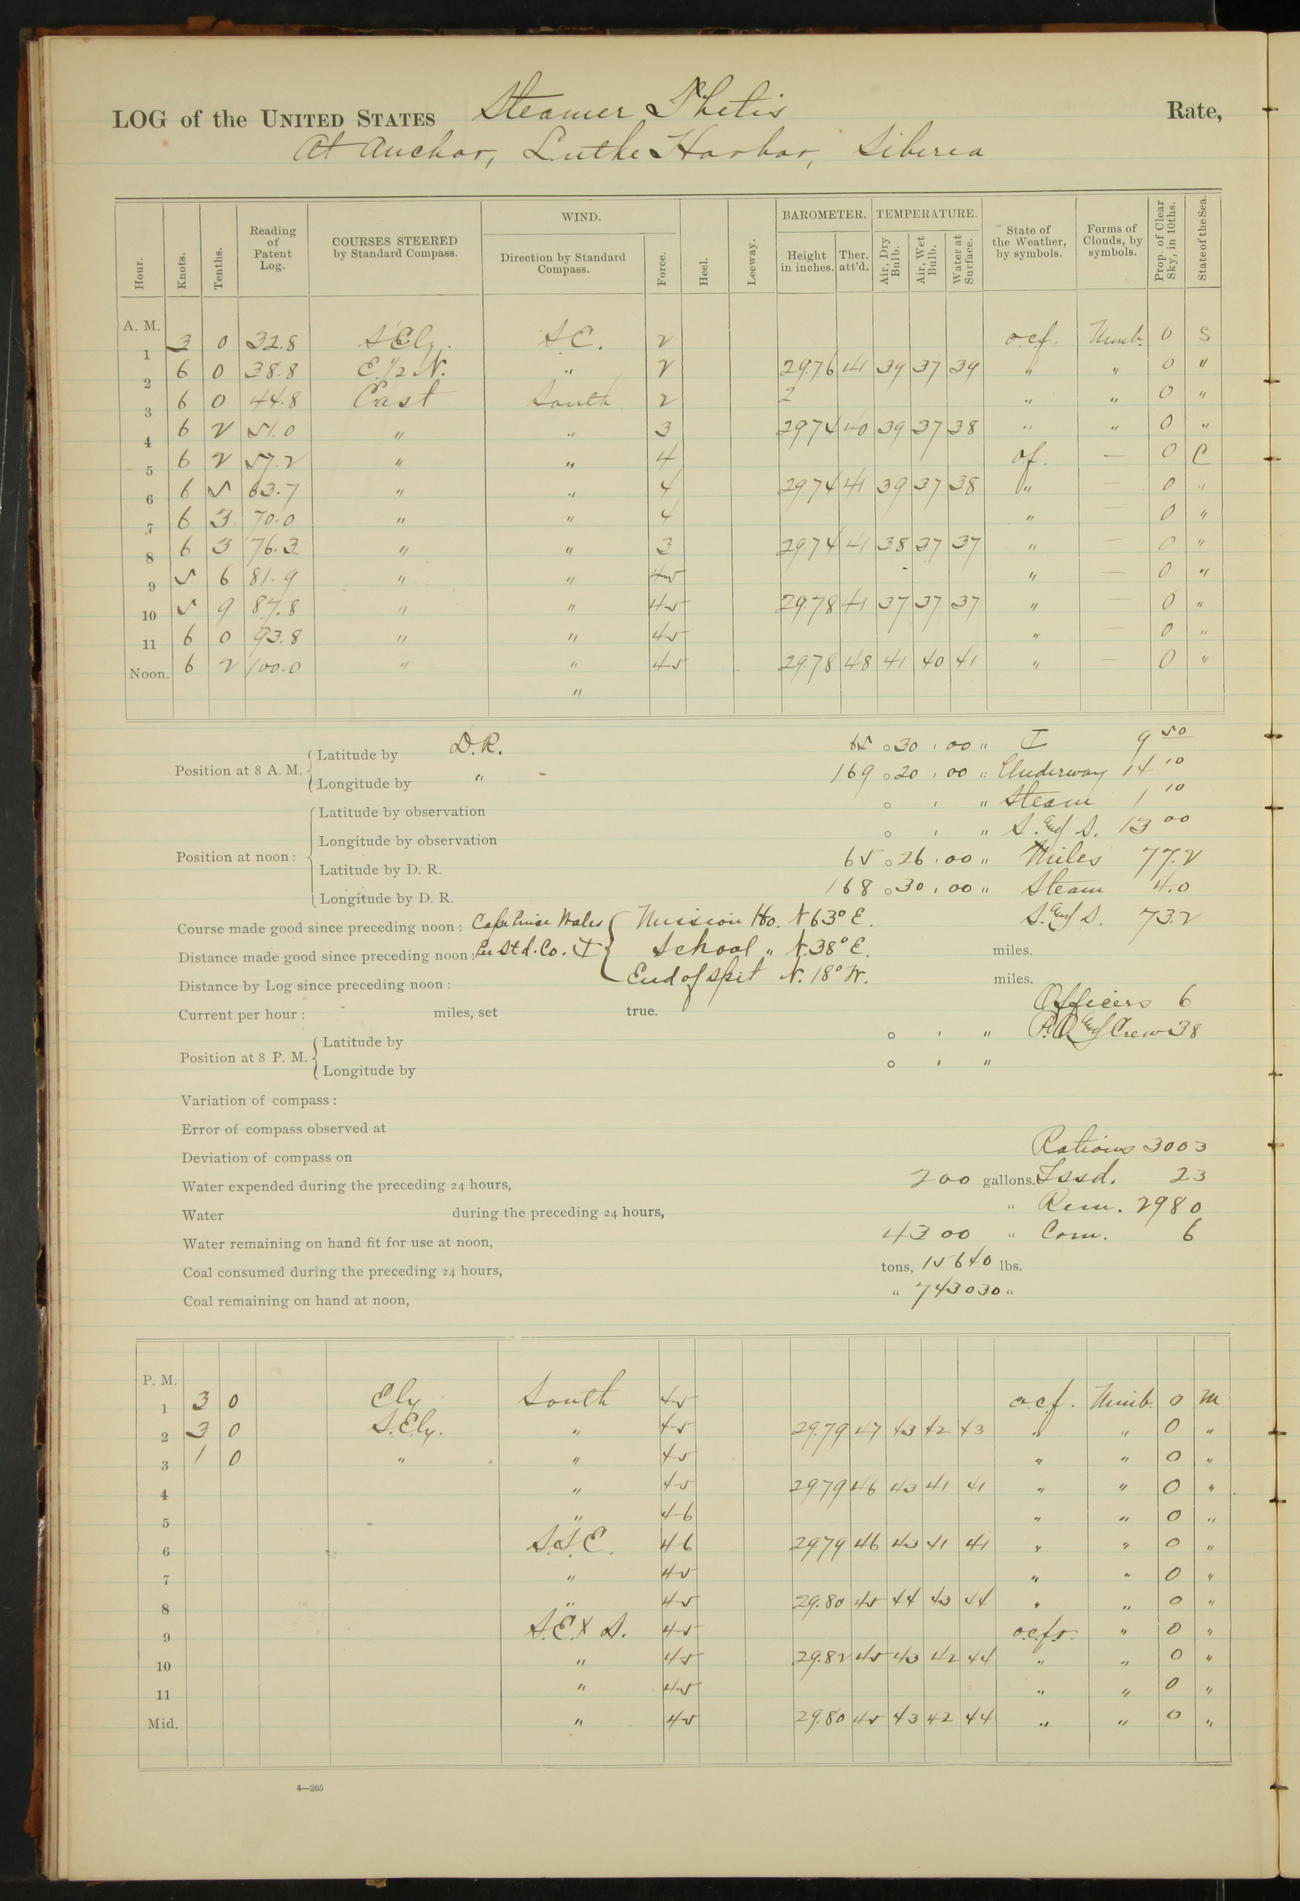 LOG of the UNITED STATES Steamer Thetis Rate,
At Anchor, Lutke Harbor, Siberia
Hour. Knots. Tenths. Reading of Patent Log. COURSES STEERED by Standard Compass. WIND. Direction by Standard Compass. Force. Heel. Leeway. BAROMETER. Height in inches. Ther. att'd. TEMPERATURE. Air, Dry Bulb. Air, Wet Bulb. Water at Surface. State of the Weather, by symbols. Forms of Clouds, by symbols. Prop. of Clear Sky, in 10ths. State of the Sea.
A. M.
1 3 0 32.8 S'Ely. S.E. 2 o.c.f. Nimb. 0 S
2 6 0 38.8 E. 1/2 N. " 2 29.76 41 39 37 39 " " 0 "
3 6 0 44.8 East South 2 2 " " 0 "
4 6 2 51.0 " " 3 29.74 40 39 37 38 " " 0 "
5 6 2 57.2 " " 4 o.f. — 0 C
6 6 5 63.7 " " 4 29.74 41 39 37 38 " — 0 "
7 6 3 70.0 " " 4 " 0 "
8 6 3 76.3 " " 3 29.74 41 38 37 37 " — 0 "
9 5 6 81.9 " " 4-5 " — 0 "
10 5 9 87.8 " " 4-5 29.78 41 37 37 37 " — 0 "
11 6 0 93.8 " " 4-5 " — 0 "
Noon. 6 2 100.0 " " 4-5 29.78 48 41 40 41 " — 0 "
"
Position at 8 A. M. Latitude by D.R. 65 ° 30 ' 00 " I 9 50
Longitude by " 169 ° 20 ' 00 " Underway 14 10
Position at noon: Latitude by observation ° ' " Steam 1 10
Longitude by observation ° ' " S. and S. 13 00
Latitude by D. R. 65 ° 26 ' 00 " Miles 77.2
Longitude by D. R. 168 ° 30 ' 00 " Steam 4.0
Course made good since preceding noon: Cape Prince Wales Mission Ho. N 63° E. S. and S. 73.2
Distance made good since preceding noon: Per Std. Co. School " N. 38° E. miles.
Distance by Log since preceding noon: End of Spit N. 18° W. miles.
Officers 6
Current per hour: miles, set true.
P.O. and Crew 38
Position at 8 P. M. Latitude by ° ' "
Longitude by ° ' "
Variation of compass:
Error of compass observed at
Deviation of compass on Rations 3003
Water expended during the preceding 24 hours, 200 gallons. Issd. 23
Water during the preceding 24 hours, " Rem. 2980
Water remaining on hand fit for use at noon, 4300 " Com. 6
Coal consumed during the preceding 24 hours, tons, 15640 lbs.
Coal remaining on hand at noon, " 743030 "
P. M.
1 3 0 Ely South 4-5 o.c.f. Nimb. 0 M
2 3 0 S.Ely. " 4-5 29.79 47 43 42 43 " " 0 "
3 1 0 " " 4-5 " " 0 "
4 " 4-5 29.79 46 43 41 41 " " 0 "
5 " 4-6 " " 0 "
6 S.S.E. 4-6 29.79 46 43 41 41 " " 0 "
7 " 4-5 " " 0 "
8 " 4-5 29.80 45 44 43 44 " " 0 "
9 S.E. x S. 4-5 o.c.f.r. " 0 "
10 " 4-5 29.82 45 43 42 44 " " 0 "
11 " 4-5 " " 0 "
Mid. " 4-5 29.80 45 43 42 44 " " 0 "
4—265